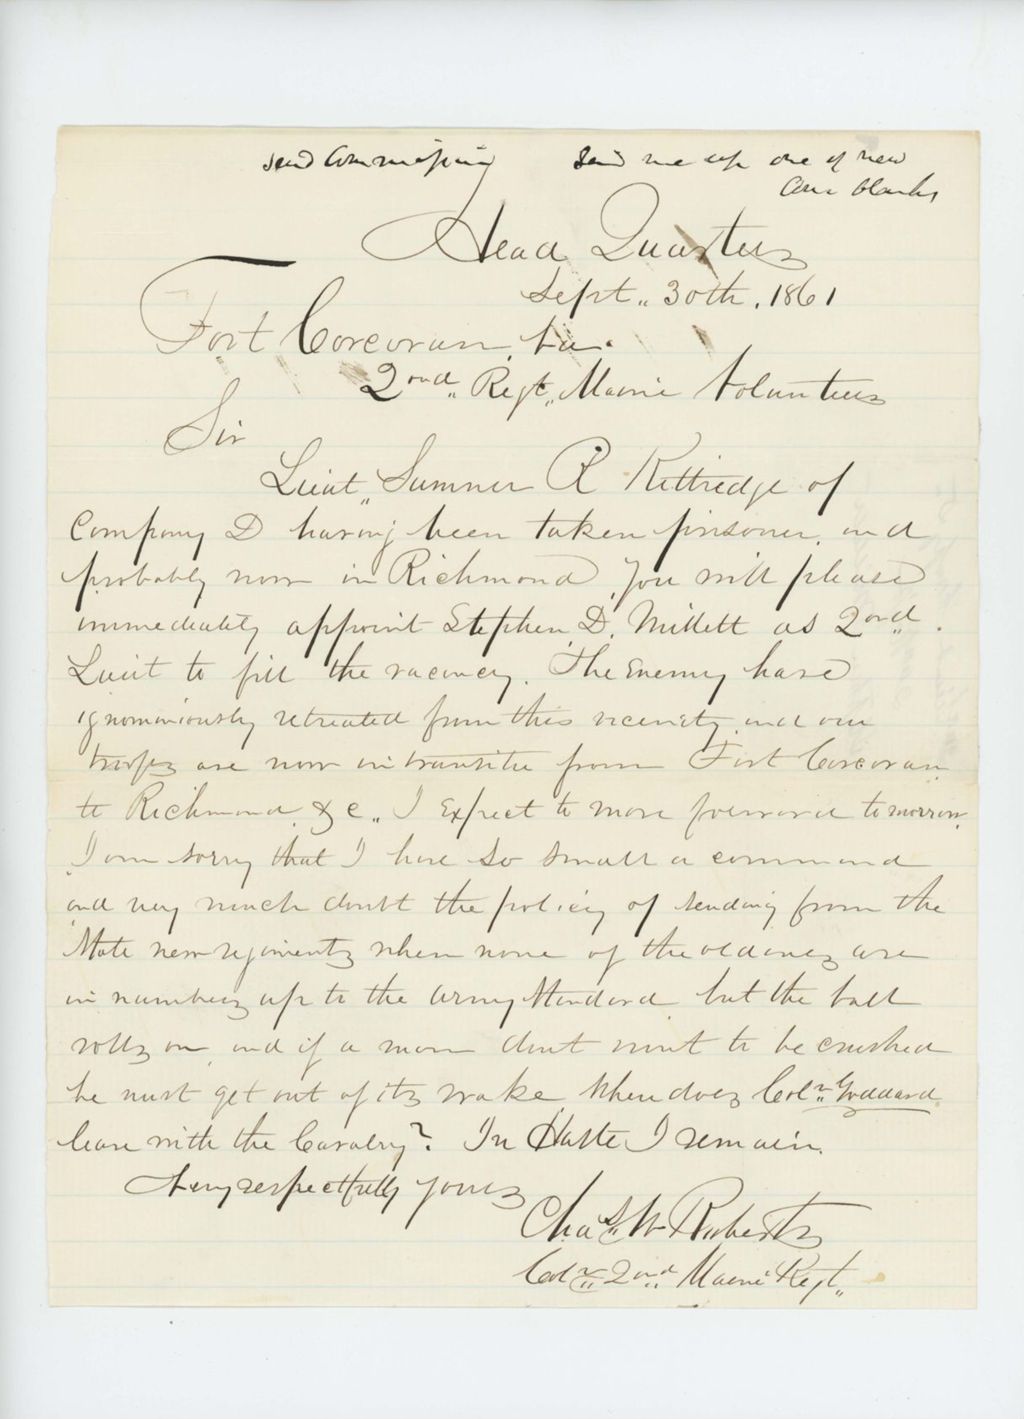 send Commission Send me up one of new
Com blanks
Head Quarters
Sept. 30th. 1861
Fort Corcoran, Va.
2ond Regt. Maine Volunteers
Sir
Lieut Sumner R Kittredge of
Company D having been taken prisoner, and
probably now in Richmond, you will please
immediately appoint Stephen D. Millett as 2ond.
Lieut to fill the vacancy. The Enemy have
ignominiously retreated from this vicinity and our
troops are now in transitu from Fort Corcoran
to Richmond &c. I Expect to move forward tomorrow.
I am sorry that I have so small a command
and very much doubt the policy of sending from the
State new regiments when none of the old ones are
in numbers up to the Army Standard but the ball
rolls on and if a man dont want to be crushed
he must get out of its wake. When does Coln Goddard
leave with the Cavalry? In Haste I remain.
Very respectfully yours
Chas W Roberts
Coln 2ond Maine Regt.